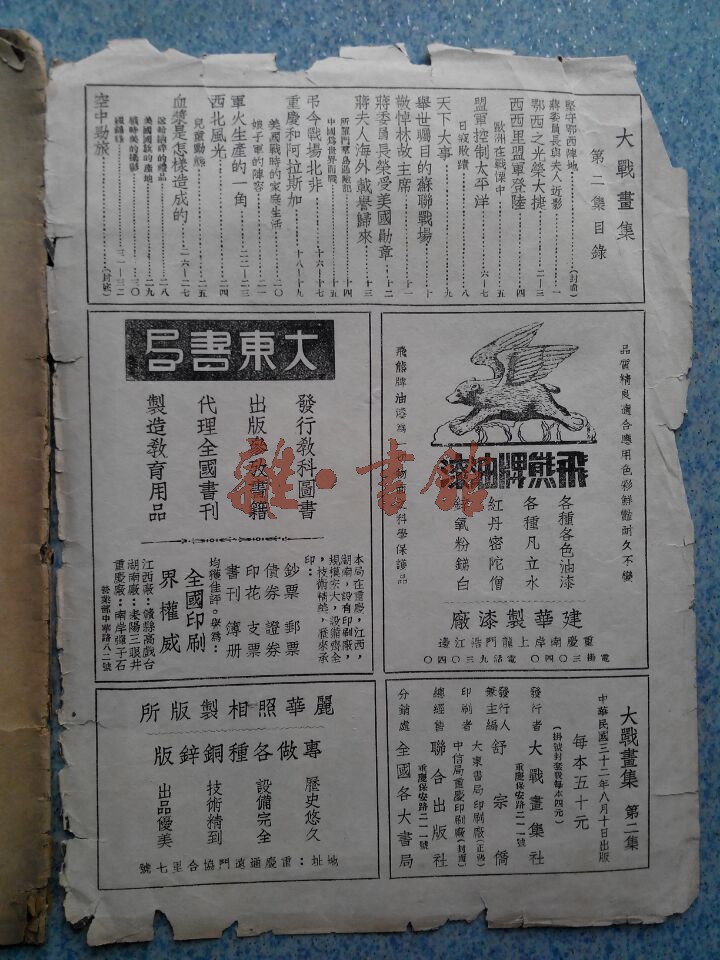 大戰畫集
第二集目錄
堅守鄂西陣地……(封面)
蔣委員長與夫人近影……一
鄂西之光榮大捷……二—三
西西里盟軍登陸……四
歐洲在戰慄中……五
盟軍控制太平洋……六—七
日寇敗蹟……八
天下大事……九
舉世矚目的蘇聯戰場……十
敬悼林故主席……十一
蔣委員長榮受美國勛章……十二
蔣夫人海外載譽歸來……十三
所羅門羣島過險記……十四
中國為世界而戰……十五
弔今戰場北非……十六—十七
重慶和阿拉斯加……十八—十九
美國戰時的家庭生活……二〇
娘子軍的陣容……二一
軍火生產的一角……二二—二三
西北風光……二四
兒童動態……二五
血漿是怎樣造成的……二六—二七
送給納粹的禮品……二八
美國國旗的產地……二九
戰時美的攝影……三〇
三一—三二
空中勁旅……(封底)
品質精良適合應用色彩鮮豔耐久不變
飛熊牌油漆
各種各色油漆
各種凡立水
紅丹密陀僧
鋅氧粉銻白
飛熊牌油漆為一切物面之科學保護品
建華製漆廠
重慶南岸上龍門浩江邊
電掛三〇四〇 電話九三〇四〇
大東書局
發行教科圖書
出版學校書籍
代理全國書刊
製造教育用品
本局在重慶,江西,湖南,設有印刷廠,規模宏大,設備齊全,技術精純,歷來承印:
鈔票 郵票
債券 證券
印花 支票
書刊 簿册
均獲佳評。譽為:
全國印刷
界權威
江西廠:贛縣高戲台
湖南廠:耒陽三眼井
重慶廠:南岸彈子石
營業部中華路八二號
大戰畫集 第二集
中華民國三十二年八月十日出版
每本五十元
(掛號封套費每本四元)
發行者 大戰畫集社
重慶保安路二一一號
發行人兼主編 舒宗僑
印刷者 大東書局印刷廠(正張)
中信局重慶印刷廠(封面)
總經售 聯合出版社
重慶保安路二一一號
分銷處 全國各大書局
麗華照相製版所
專做各種銅鋅版
歷史悠久
設備完全
技術精到
出品優美
地址:重慶通遠門協合里七號
雜·書館